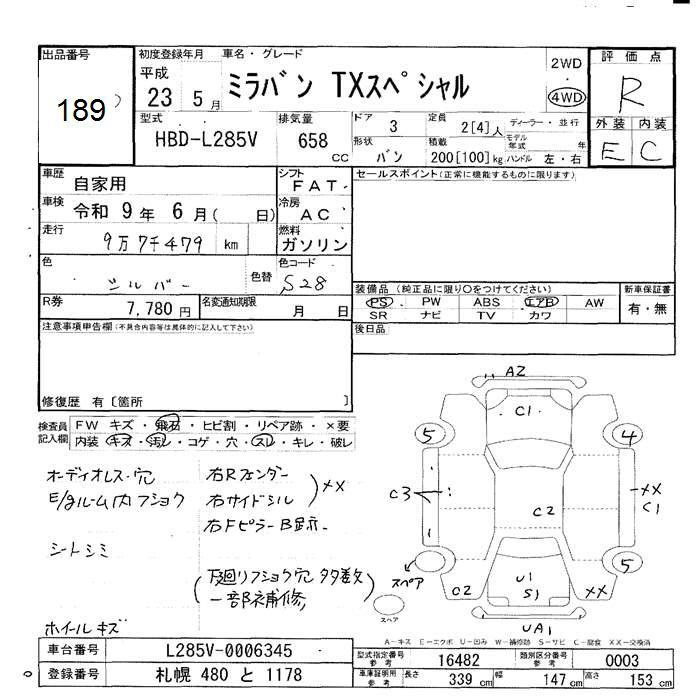 出品番号 初度登録年月 車名・グレード 2WD 評価点
189 平成 23 5月 ミラバン TXスペシャル 4WD R
型式 排気量 ドア 3 定員 2[4]人 ディーラー・並行 外装 内装
HBD-L285V 658 CC 形状 バン 積載 200[100]kg モデル年式 年 ハンドル 左・右 E C
車歴 自家用 シフト FAT
セールスポイント(正常に機能するものに限ります)
車検 令和 9年 6月( 日) 冷房 AC
走行 9万7千479 km 燃料 ガソリン
色 シルバー 色替 色コード S28
装備品 (純正品に限り○をつけてください) 新車保証書
PS PW ABS エアB AW 有・無
SR ナビ TV カワ
R券 7,780円 名変通知期限 月 日
後日品
注意事項申告欄(不具合内容等は具体的に記入して下さい)
修復歴 有〔箇所 〕
検査員記入欄 FW キズ・飛石・ヒビ割・リペア跡・×要
内装 キズ・汚レ・コゲ・穴・スレ・キレ・破レ
オーディオレス・穴
E/gルーム内フショク
シートシミ
ホイールキズ
右Rフェンダー
右サイドシル
××
右Fピラー B跡
(下廻りフショク穴 多数
一部補修)
A2
C1
5
4
C3
C2
××
C1
5
スペア
C2
U1
S1
××
スペア
UA1
A-キズ E-エクボ U-凹み W-補修跡 S-サビ C-腐食 XX-交換済
車台番号 L285V-0006345
型式指定番号 参考 16482 類別区分番号 参考 0003
登録番号 札幌 480 と 1178
車庫証明用 参考 長さ 339 cm 幅 147 cm 高さ 153 cm